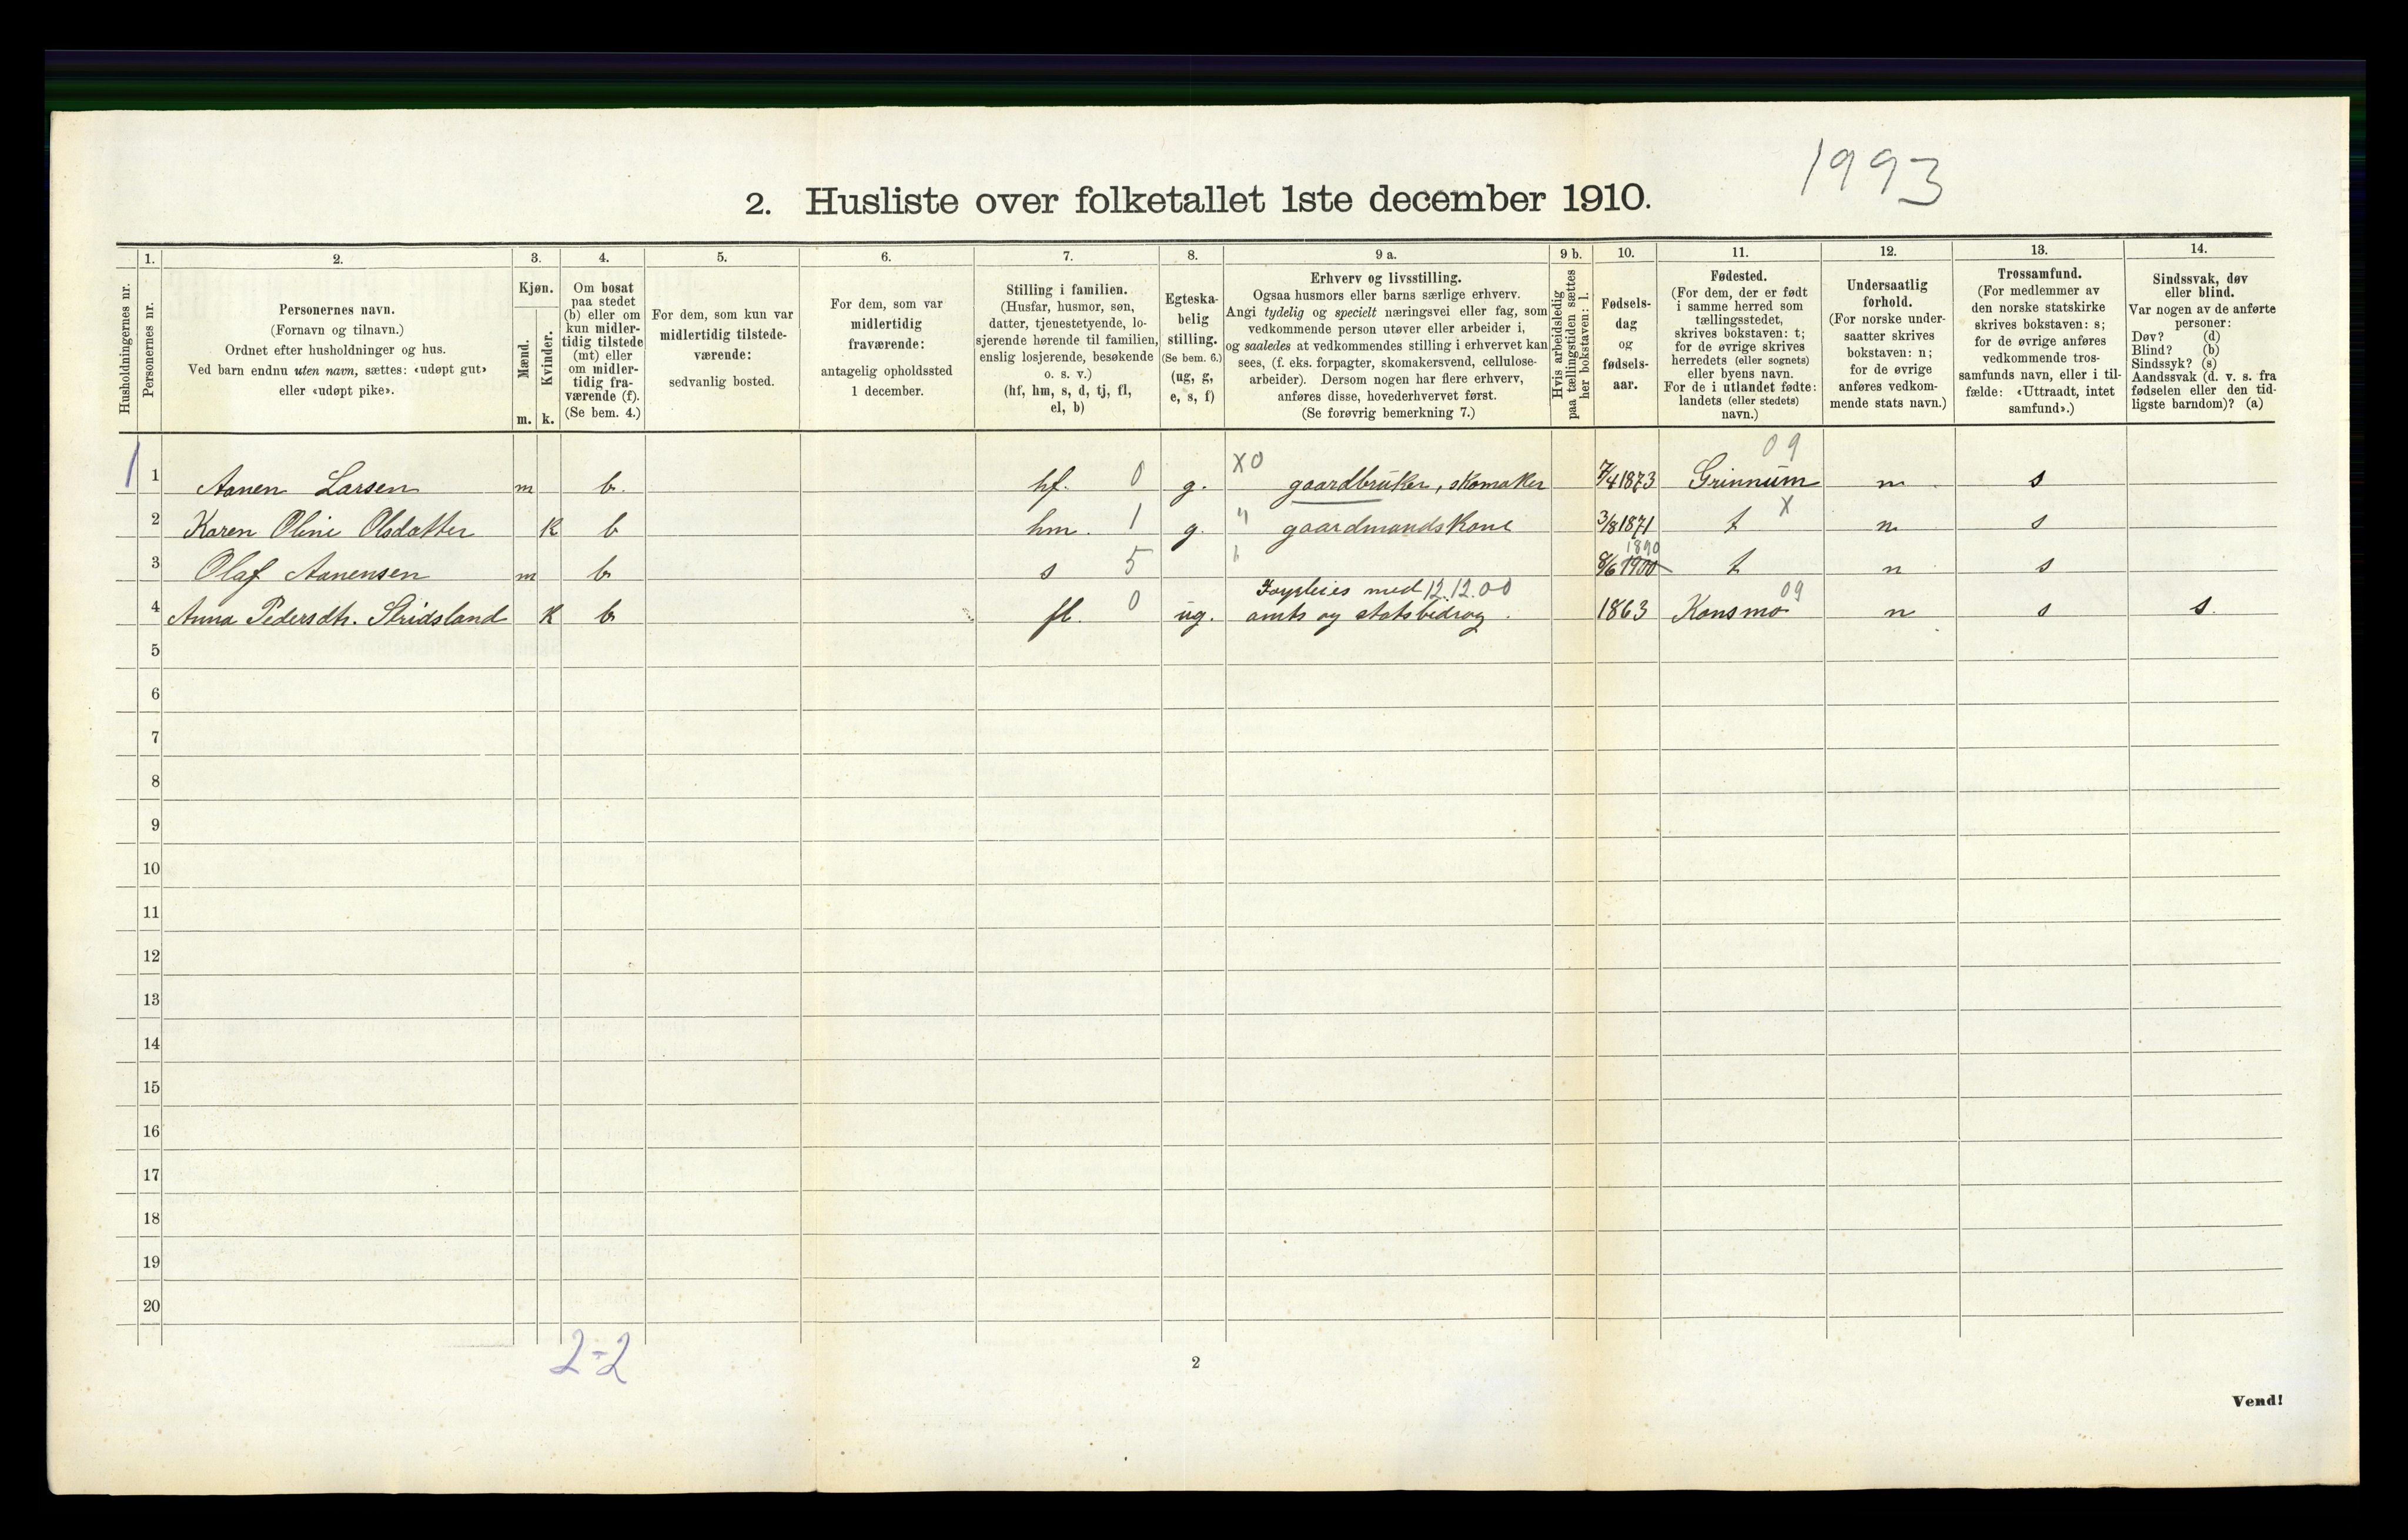 1993
2. Husliste over folketallet 1ste december 1910.
1. 2. 3. 4. 5. 6. 7. 8. 9 a. 9 b. 10. 11. 12. 13. 14.
Husholdningernes nr.
Personernes nr.
Personernes navn.
(Fornavn og tilnavn.)
Ordnet efter husholdninger og hus.
Ved barn endnu uten navn, sættes: «udøpt gut»
eller «udøpt pike».
Kjøn.
Mænd.
Kvinder.
m. k.
Om bosat
paa stedet
(b) eller om
kun midler-
tidig tilstede
(mt) eller
om midler-
tidig fra-
værende (f).
(Se bem. 4.)
For dem, som kun var
midlertidig tilstede-
værende:
sedvanlig bosted.
For dem, som var
midlertidig
fraværende:
antagelig opholdssted
1 december.
Stilling i familien.
(Husfar, husmor, søn,
datter, tjenestetyende, lo-
sjerende hørende til familien,
enslig losjerende, besøkende
o. s. v.)
(hf, hm, s, d, tj, fl,
el, b)
Egteska-
belig
stilling.
(Se bem. 6.)
(ug, g,
e, s, f)
Erhverv og livsstilling.
Ogsaa husmors eller barns særlige erhverv.
Angi tydelig og specielt næringsvei eller fag, som
vedkommende person utøver eller arbeider i,
og saaledes at vedkommendes stilling i erhvervet kan
sees, (f. eks. forpagter, skomakersvend, cellulose-
arbeider). Dersom nogen har flere erhverv,
anføres disse, hovederhvervet først.
(Se forøvrig bemerkning 7.)
Hvis arbeidsledig
paa tællingstiden sættes
her bokstaven: l.
Fødsels-
dag
og
fødsels-
aar.
Fødested.
(For dem, der er født
i samme herred som
tællingsstedet,
skrives bokstaven: t;
for de øvrige skrives
herredets (eller sognets)
eller byens navn.
For de i utlandet fødte:
landets (eller stedets)
navn.)
Undersaatlig
forhold.
(For norske under-
saatter skrives
bokstaven: n;
for de øvrige
anføres vedkom-
mende stats navn.)
Trossamfund.
(For medlemmer av
den norske statskirke
skrives bokstaven: s;
for de øvrige anføres
vedkommende tros-
samfunds navn, eller i til-
fælde: «Uttraadt, intet
samfund».)
Sindssvak, døv
eller blind.
Var nogen av de anførte
personer:
Døv? (d)
Blind? (b)
Sindssyk? (s)
Aandssvak (d. v. s. fra
fødselen eller den tid-
ligste barndom)? (a)
09
1 1 Aanen Larsen m b. hf. 0 g. X0 gaardbruker, skomaker 7/4 1873 Grinnum n s
2 Karen Oline Olsdatter k b hm. 1 g. " gaardmandskone 3/8 1871 t X n s
1890
3 Olaf Aanensen m b s 5 " 8/6 1900 t n s
Forpleies med 12.12.00 09
4 Anna Pedersdtr. Stridsland k b fl. 0 ug. amts og statsbidrag. 1863 Konsmo n s s.
5
6
7
8
9
10
11
12
13
14
15
16
17
18
19
20
2-2
2
Vend!